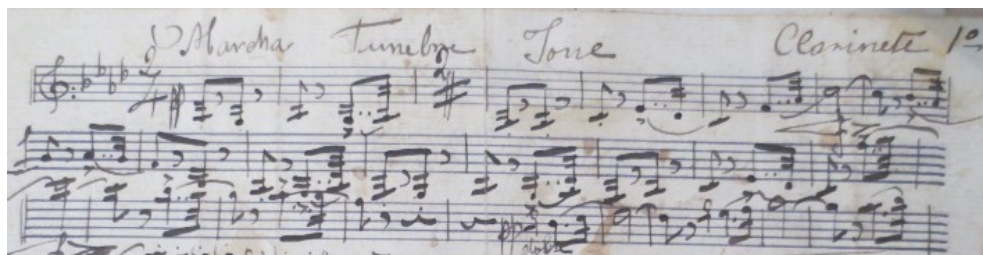 Marcha Funebre Jone Clarinete 1º
2
pp
pp